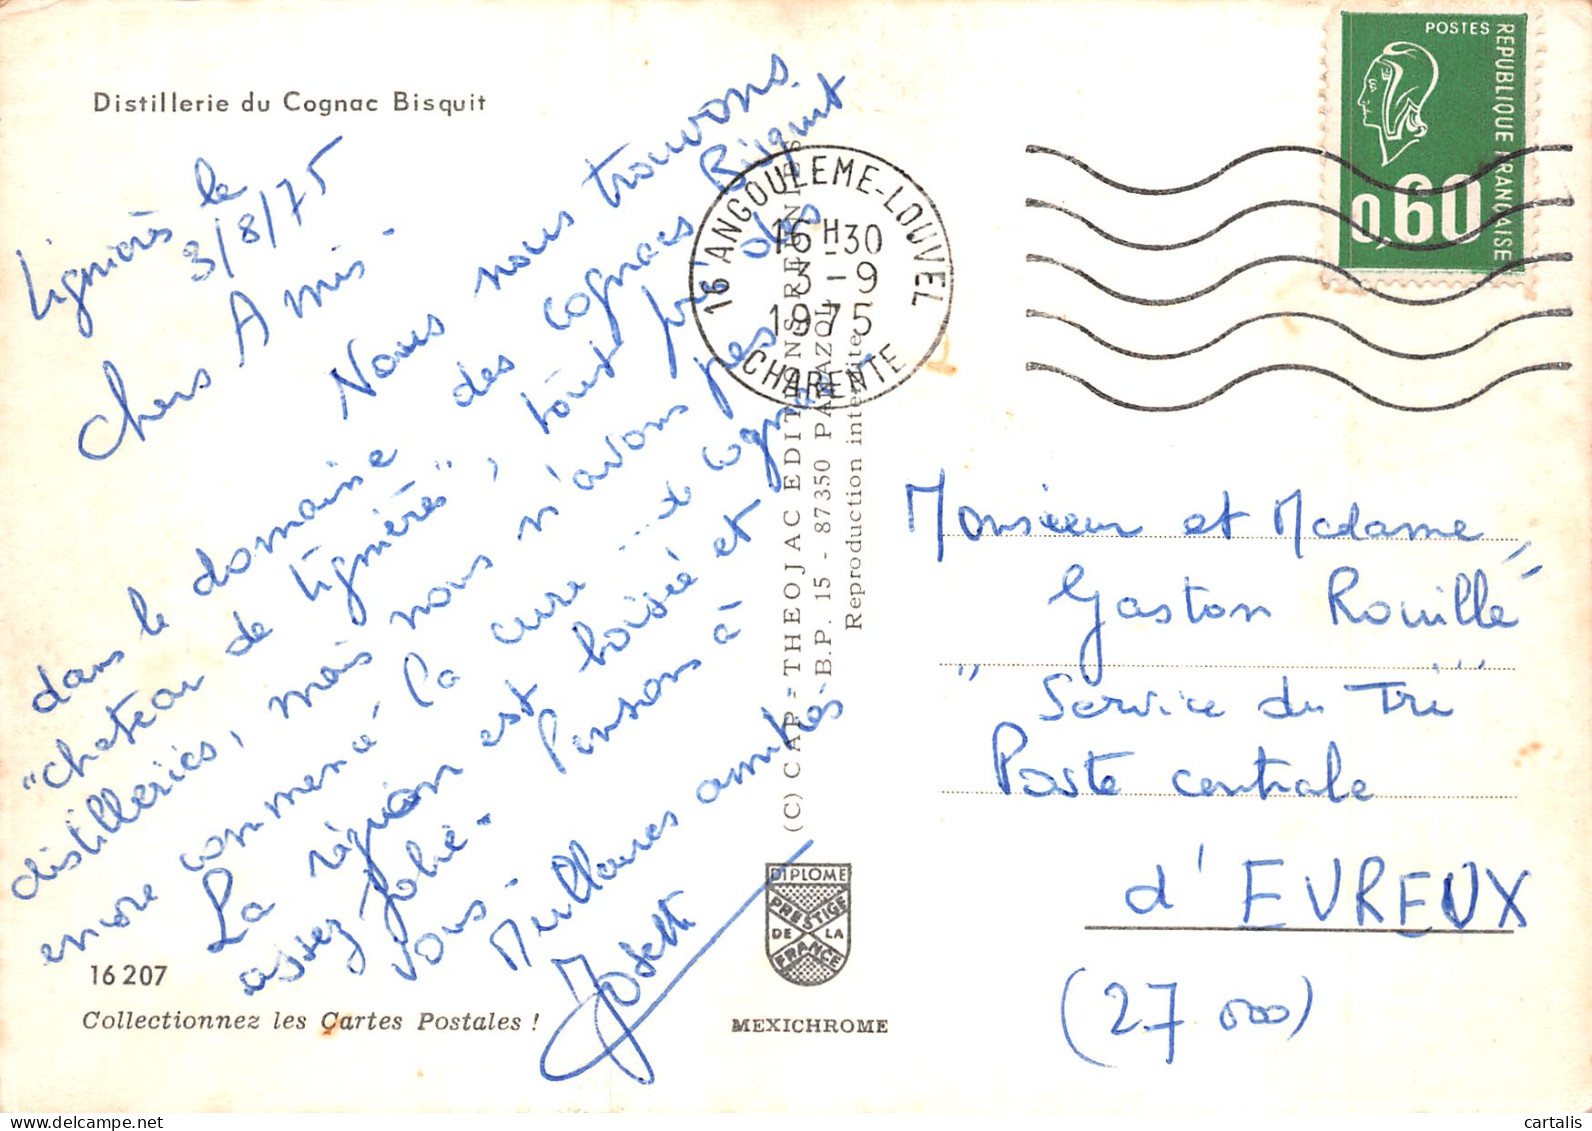 Distillerie du Cognac Bisquit
Lignières le
3/8/75
Chers Amis -
Nous nous trouvons
dans le domaine des cognacs Bisquit
"chateau de Lignières", tout près des
distilleries, mais nous n'avons pas
encore commencé la cure ... de cognac
La région est boisée et
assez jolie - Pensons à
vous -
Milliares amitiés
Josette
16 207
Collectionnez les Cartes Postales !
(C) CAP - THEOJAC EDITIONS
B.P. 15 - 87350 PANAZOL
Reproduction interdite
DIPLOME
PRESTIGE
DE LA
FRANCE
MEXICHROME
16 ANGOULEME-LOUVEL
16H30
3-9
1975
CHARENTE
POSTES
REPUBLIQUE FRANCAISE
0,60
Monsieur et Madame
Gaston Rouille
"Service du Tri"
Poste centrale
d'EVREUX
(27 000)